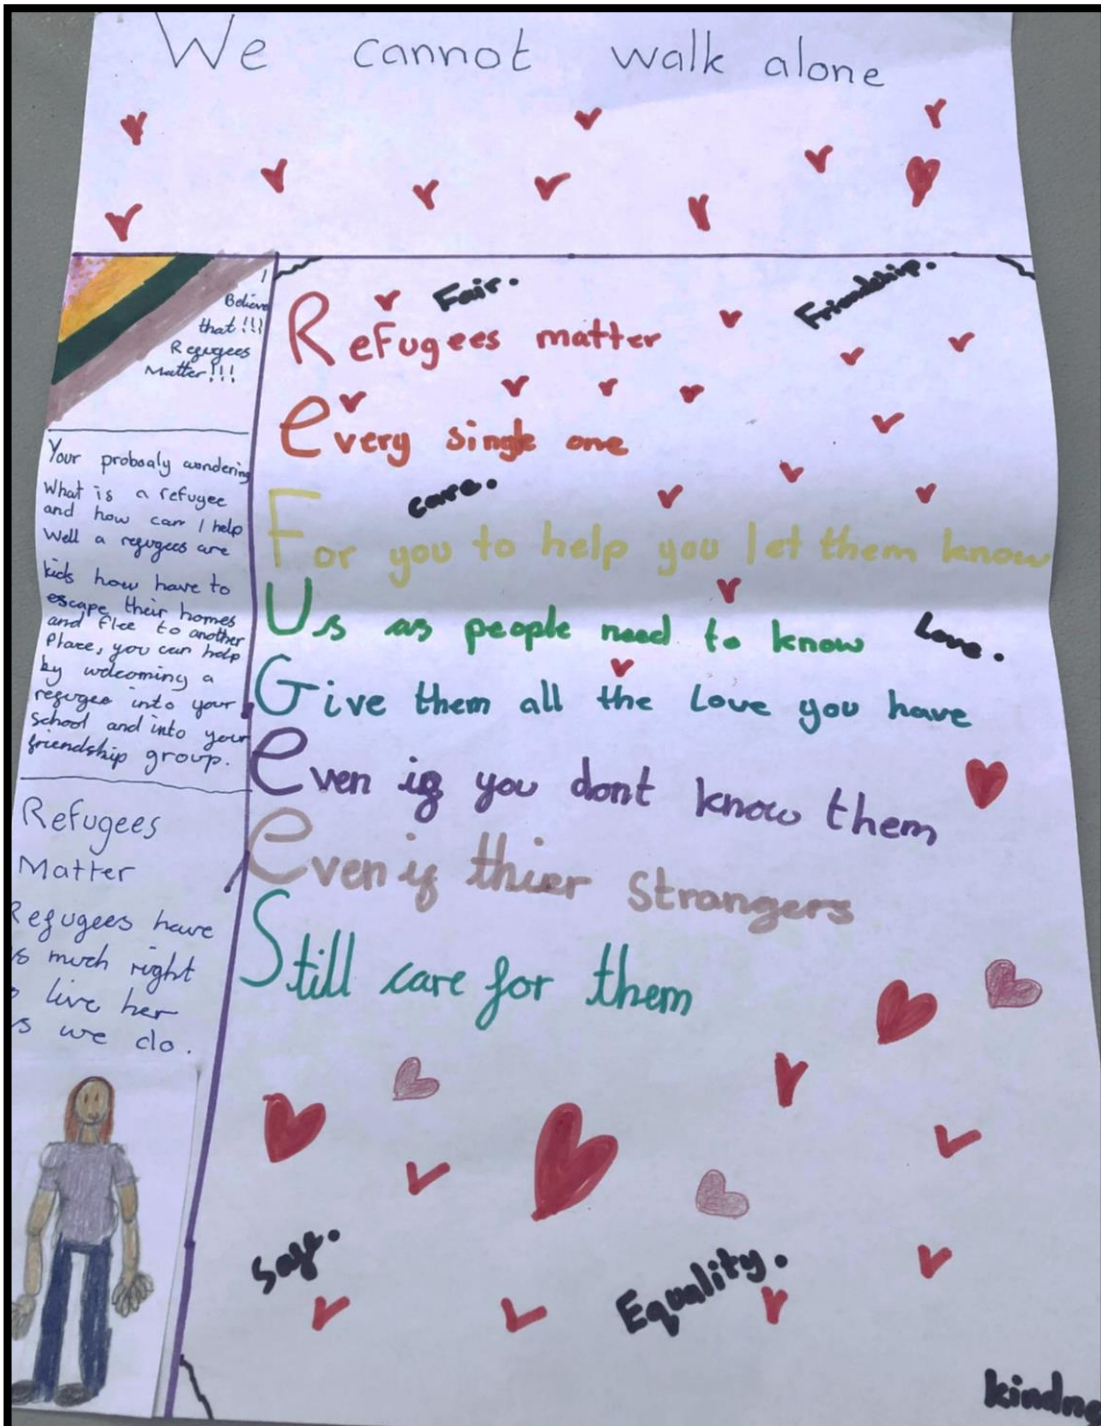 We cannot walk alone
I
Believe
that!!!
Refugees
Matter!!!
Your proboaly wondering
What is a refugee
and how can I help
Well a refugees are
kids how have to
escape their homes
and flee to another
Place, you can help
by welcoming a
refugee into your
school and into your
friendship group.
Refugees
Matter
Refugees have
s much right
live her
s we do.
Fair.
Friendship.
Refugees matter
Every single one
care.
For you to help you let them know
Us as people need to know
Love.
Give them all the Love you have
Even if you dont know them
Even if thier Strangers
Still care for them
Safe.
Equality.
kindne